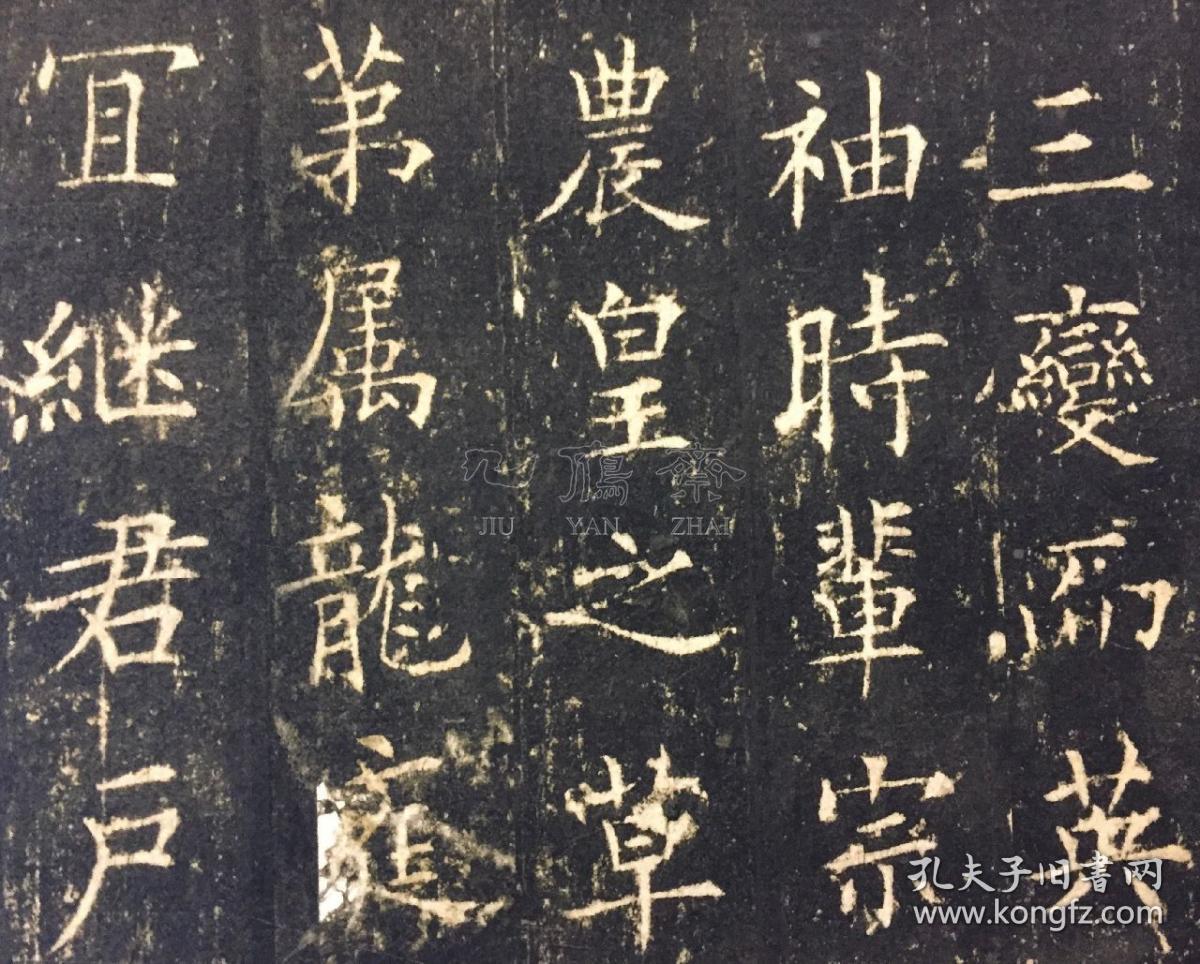 三變而英
袖時軰宗
農皇之草
苐属龍庭
冝継君戸
九鴈齋
JIU YAN ZHAI
孔夫子旧书网
www.kongfz.com